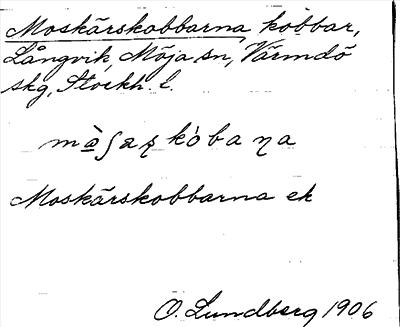 Moskärskobbarna, kobbar,
Långvik, Möja sn, Värmdö
skg, Stockh. l.
Moskärskobbarna ek
O. Lundberg 1906